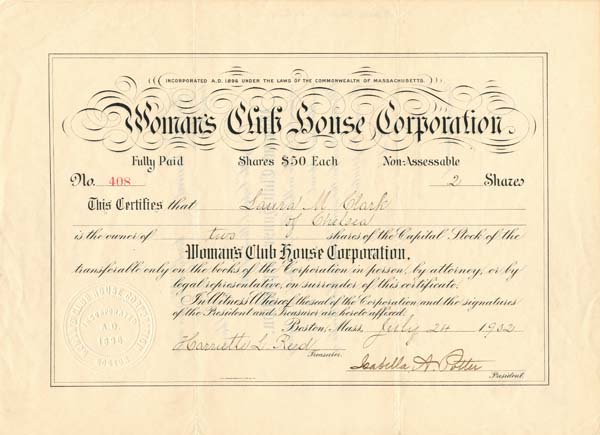 INCORPORATED A.D. 1896 UNDER THE LAWS OF THE COMMONWEALTH OF MASSACHUSETTS.
Woman's Club House Corporation.
Fully Paid Shares $50 Each Non-Assessable
No. 408 2 Shares
This Certifies that Laura M. Clark
of Chelsea
is the owner of two shares of the Capital Stock of the
Woman's Club House Corporation,
transferable only on the books of the Corporation in person, by attorney, or by
legal representative, on surrender of this certificate.
In Witness Whereof the seal of the Corporation and the signatures
of the President and Treasurer are hereto affixed.
Boston, Mass. July 24 1902
Harriette L. Reed
Treasurer.
Isabella A. Potter
President.
WOMAN'S CLUB HOUSE CORPORATION
INCORPORATED
A.D.
1896
BOSTON